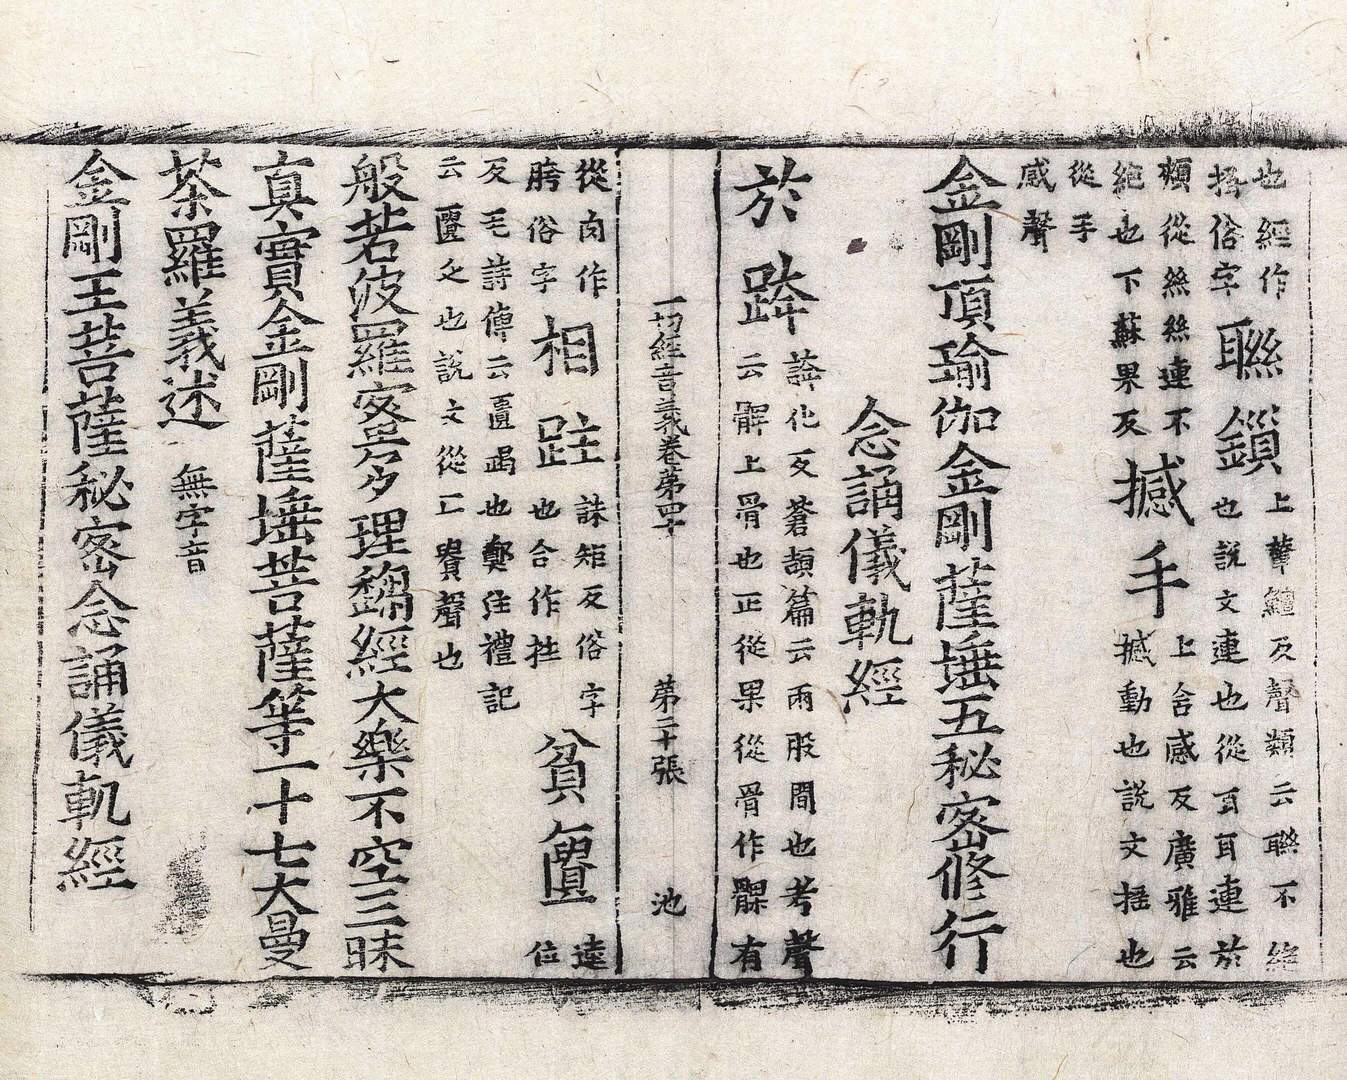 也經作搖俗字聯鎖上輦鱣反聲類云聯不絕也說文連也從耳耳連於
頰從絲絲連不絕也下蘇果反撼手上含感反廣雅云撼動也說文搖也
從手感聲
金剛頂瑜伽金剛薩埵五秘密修行
念誦儀軌經
於跨誇化反蒼頡篇云兩股間也考聲云髀上骨也正從果從骨作髁有
一切經音義卷第四十 第二十張 池
從肉作胯俗字相跓誅矩反俗字也合作拄貧匱逵位
反毛詩傳云匱竭也鄭注禮記云匱乏也說文從匚貴聲也
般若波羅蜜多理趣經大樂不空三昧
真實金剛薩埵菩薩等一十七大曼
茶羅義述 無字音
金剛王菩薩秘密念誦儀軌經